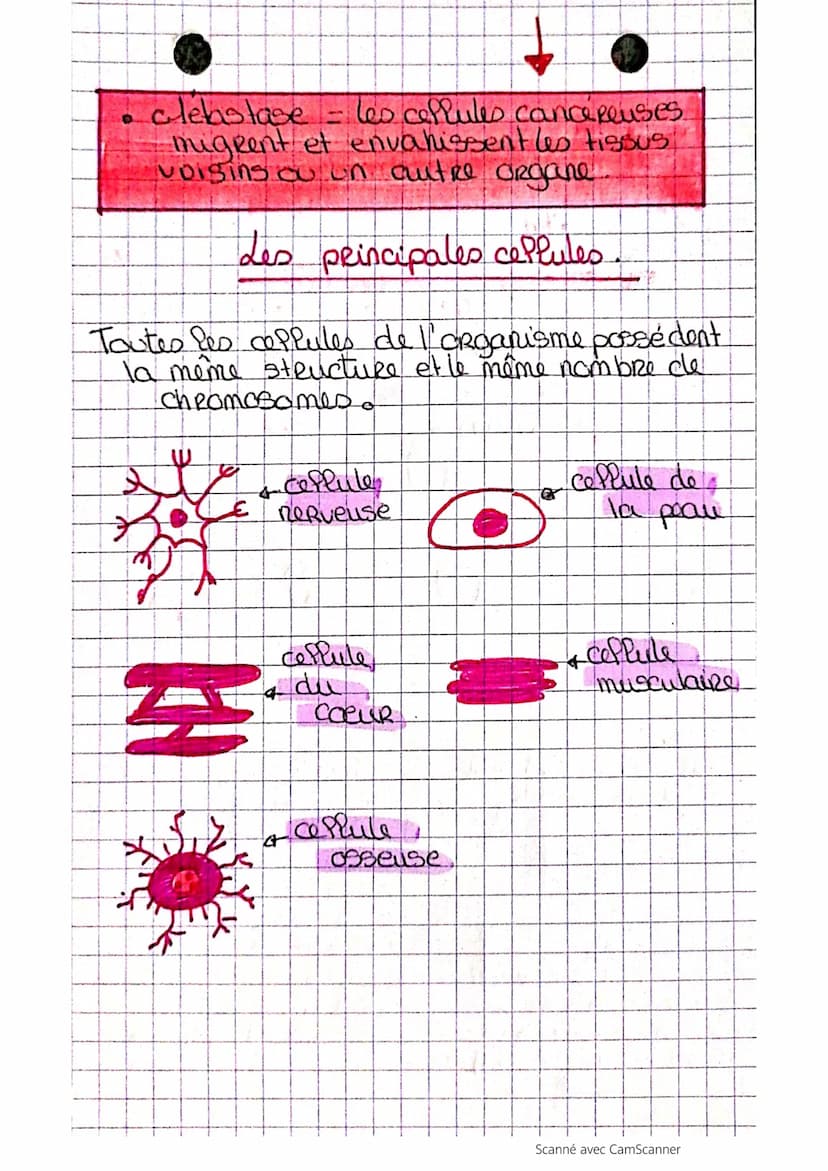 • Métastase = les cellules cancéreuses
migrent et envahissent les tissus
voisins ou un autre organe.
Les principales cellules.
Toutes les cellules de l'organisme possédent
la même structure et le même nombre de
chromosomes.
cellule
nerveuse
cellule de
la peau
cellule
du
coeur
cellule
musculaire
cellule
osseuse
Scanné avec CamScanner